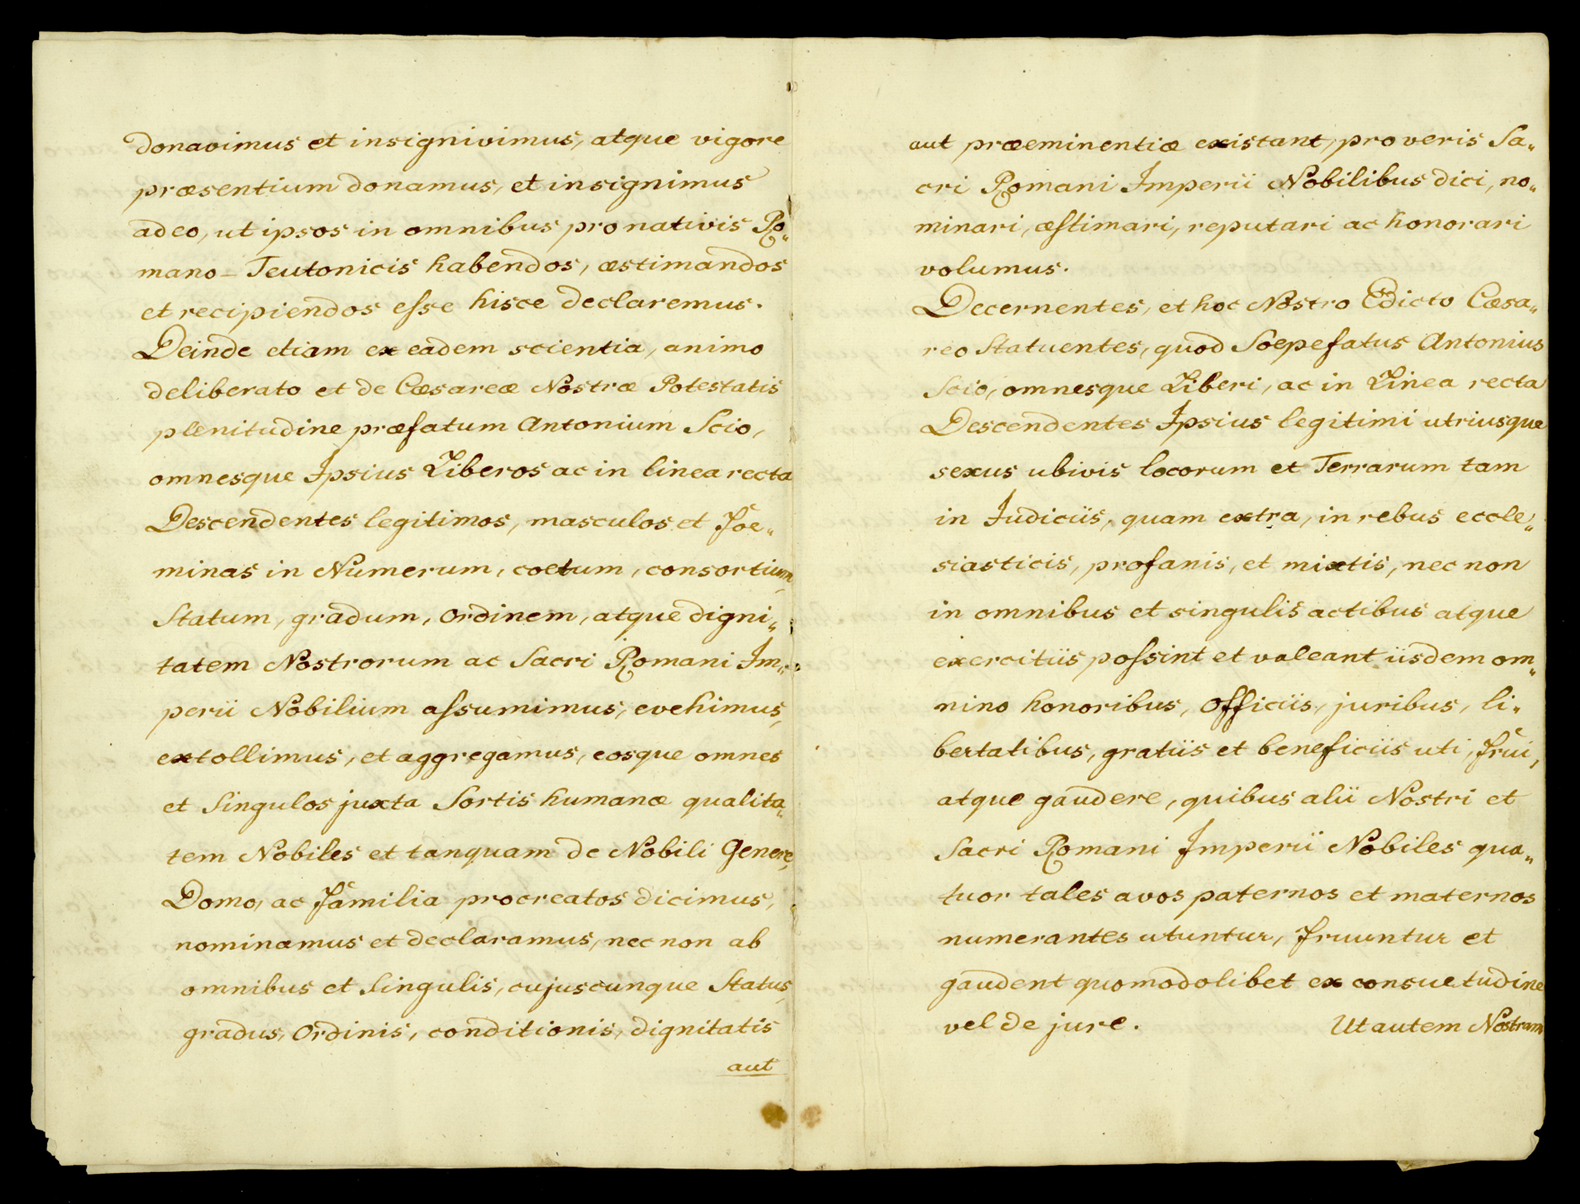 donavimus et insignivimus, atque vigore
præsentium donamus, et insignimus
adeo, ut ipsos in omnibus pro nativis Ro„
mano-Teutonicis habendos, æstimandos
et recipiendos eſse hisce declaremus.
Deinde etiam ex eadem scientia, animo
deliberato et de Cæsareæ Nostræ Potestatis
plenitudine præfatum Antonium Scio,
omnesque Ipsius Liberos ac in linea recta
Descendentes legitimos, masculos et Foe„
minas in Numerum, coetum, consortium,
Statum, gradum, Ordinem, atque digni„
tatem Nostrorum ac Sacri Romani Im„
perii Nobilium aſsumimus, evehimus,
extollimus, et aggregamus, eosque omnes
et Singulos juxta Sortis humanæ qualita„
tem Nobiles et tanquam de Nobili Genere,
Domo, ac Familia procreatos dicimus,
nominamus et declaramus, nec non ab
omnibus et Singulis, cujuscunque Status,
gradus, Ordinis, conditionis, dignitatis
aut
aut præeminentiæ existant, pro veris Sa„
cri Romani Imperii Nobilibus dici, no„
minari, æſtimari, reputari ac honorari
volumus.
Decernentes, et hoc Nostro Edicto Cæsa„
reo Statuentes, quod Soepefatus Antonius
Scio, omnesque Liberi, ac in Linea recta
Descendentes Ipsius legitimi utriusque
sexus ubivis locorum et Terrarum tam
in Iudiciis, quam extra, in rebus eccle„
siasticis, profanis, et mixtis, nec non
in omnibus et singulis actibus atque
exercitiis poſsint et valeant iisdem om„
nino honoribus, Officiis, juribus, li„
bertatibus, gratiis et beneficiis uti, frui,
atque gaudere, quibus alii Nostri et
Sacri Romani Imperii Nobiles qua„
tuor tales avos paternos et maternos
numerantes utuntur, fruuntur et
gaudent quomodolibet ex consuetudine
vel de jure. Ut autem Nostram